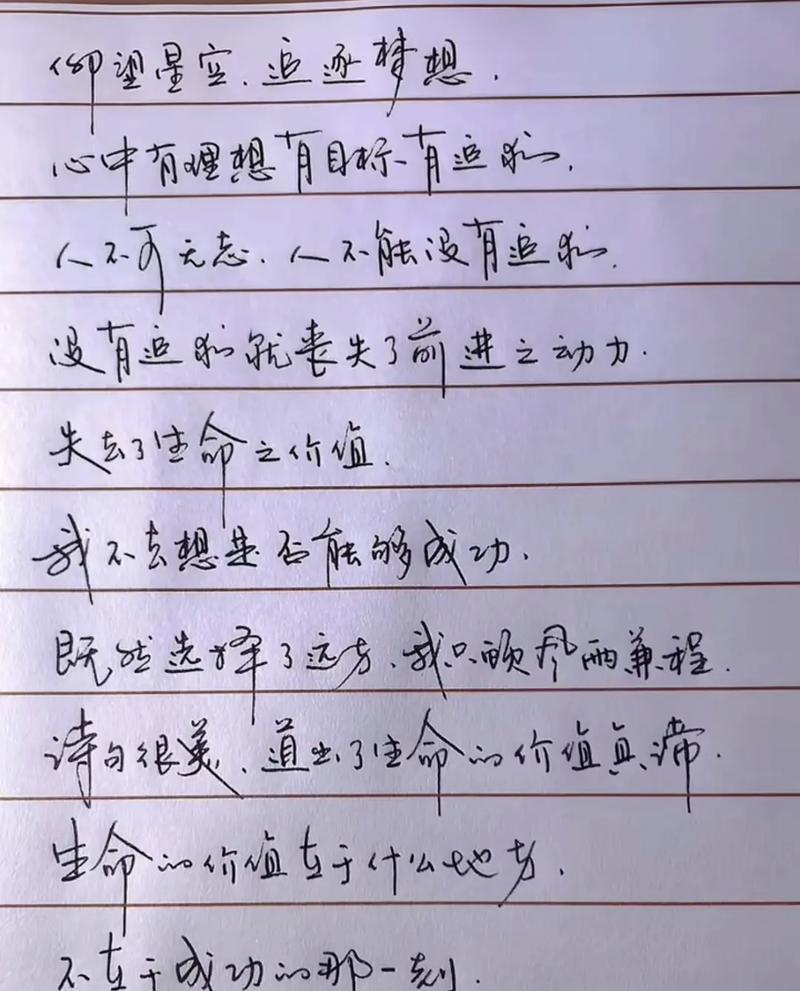 仰望星空、追逐梦想.
心中有理想有目标、有追求,
人不可无志、人不能没有追求.
没有追求就丧失了前进之动力.
失去了生命之价值.
我不去想是否能够成功.
既然选择了远方、我只顾风雨兼程.
诗句很美、道出了生命的价值真谛.
生命的价值在于什么地方.
不在于成功的那一刻.